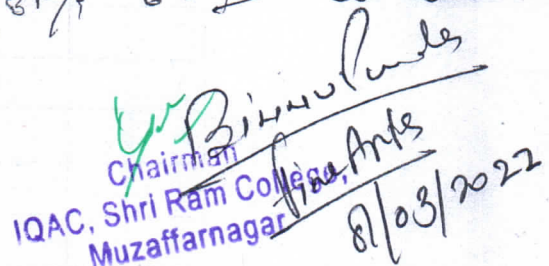 Binnu Pundir
Fine Arts
8/03/2022
Chairman
IQAC, Shri Ram College,
Muzaffarnagar